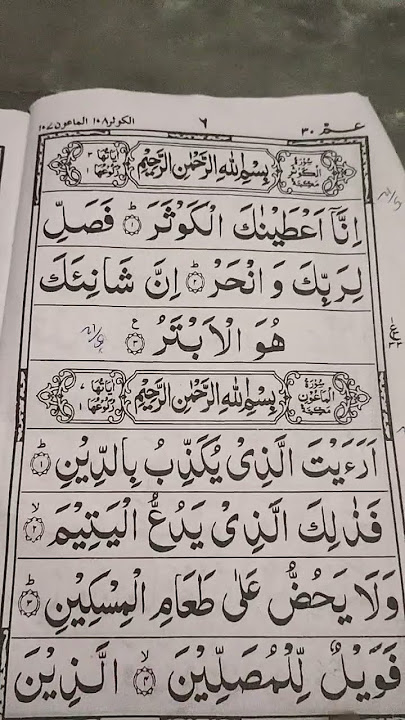 عمّ ٣٠ ٦ الكوثر ١٠٨ الماعون ١٠٧
سُورَةُ الْكَوْثَرِ مَكِّيَّةٌ بِسْمِ اللهِ الرَّحْمٰنِ الرَّحِيْمِ اٰيَاتُهَا ٣ رُكُوْعُهَا ١
اِنَّاۤ اَعْطَيْنٰكَ الْكَوْثَرَ ؕ ١ فَصَلِّ
لِرَبِّكَ وَ انْحَرْ ؕ ٢ اِنَّ شَانِئَكَ
هُوَ الْاَبْتَرُ ٣ ع
سُورَةُ الْمَاعُوْنِ مَكِّيَّةٌ بِسْمِ اللهِ الرَّحْمٰنِ الرَّحِيْمِ اٰيَاتُهَا ٧ رُكُوْعُهَا ١
اَرَءَيْتَ الَّذِىْ يُكَذِّبُ بِالدِّيْنِ ؕ ١
فَذٰلِكَ الَّذِىْ يَدُعُّ الْيَتِيْمَ ۙ ٢
وَلَا يَحُضُّ عَلٰى طَعَامِ الْمِسْكِيْنِ ؕ ٣
فَوَيْلٌ لِّلْمُصَلِّيْنَ ۙ ٤ الَّذِيْنَ